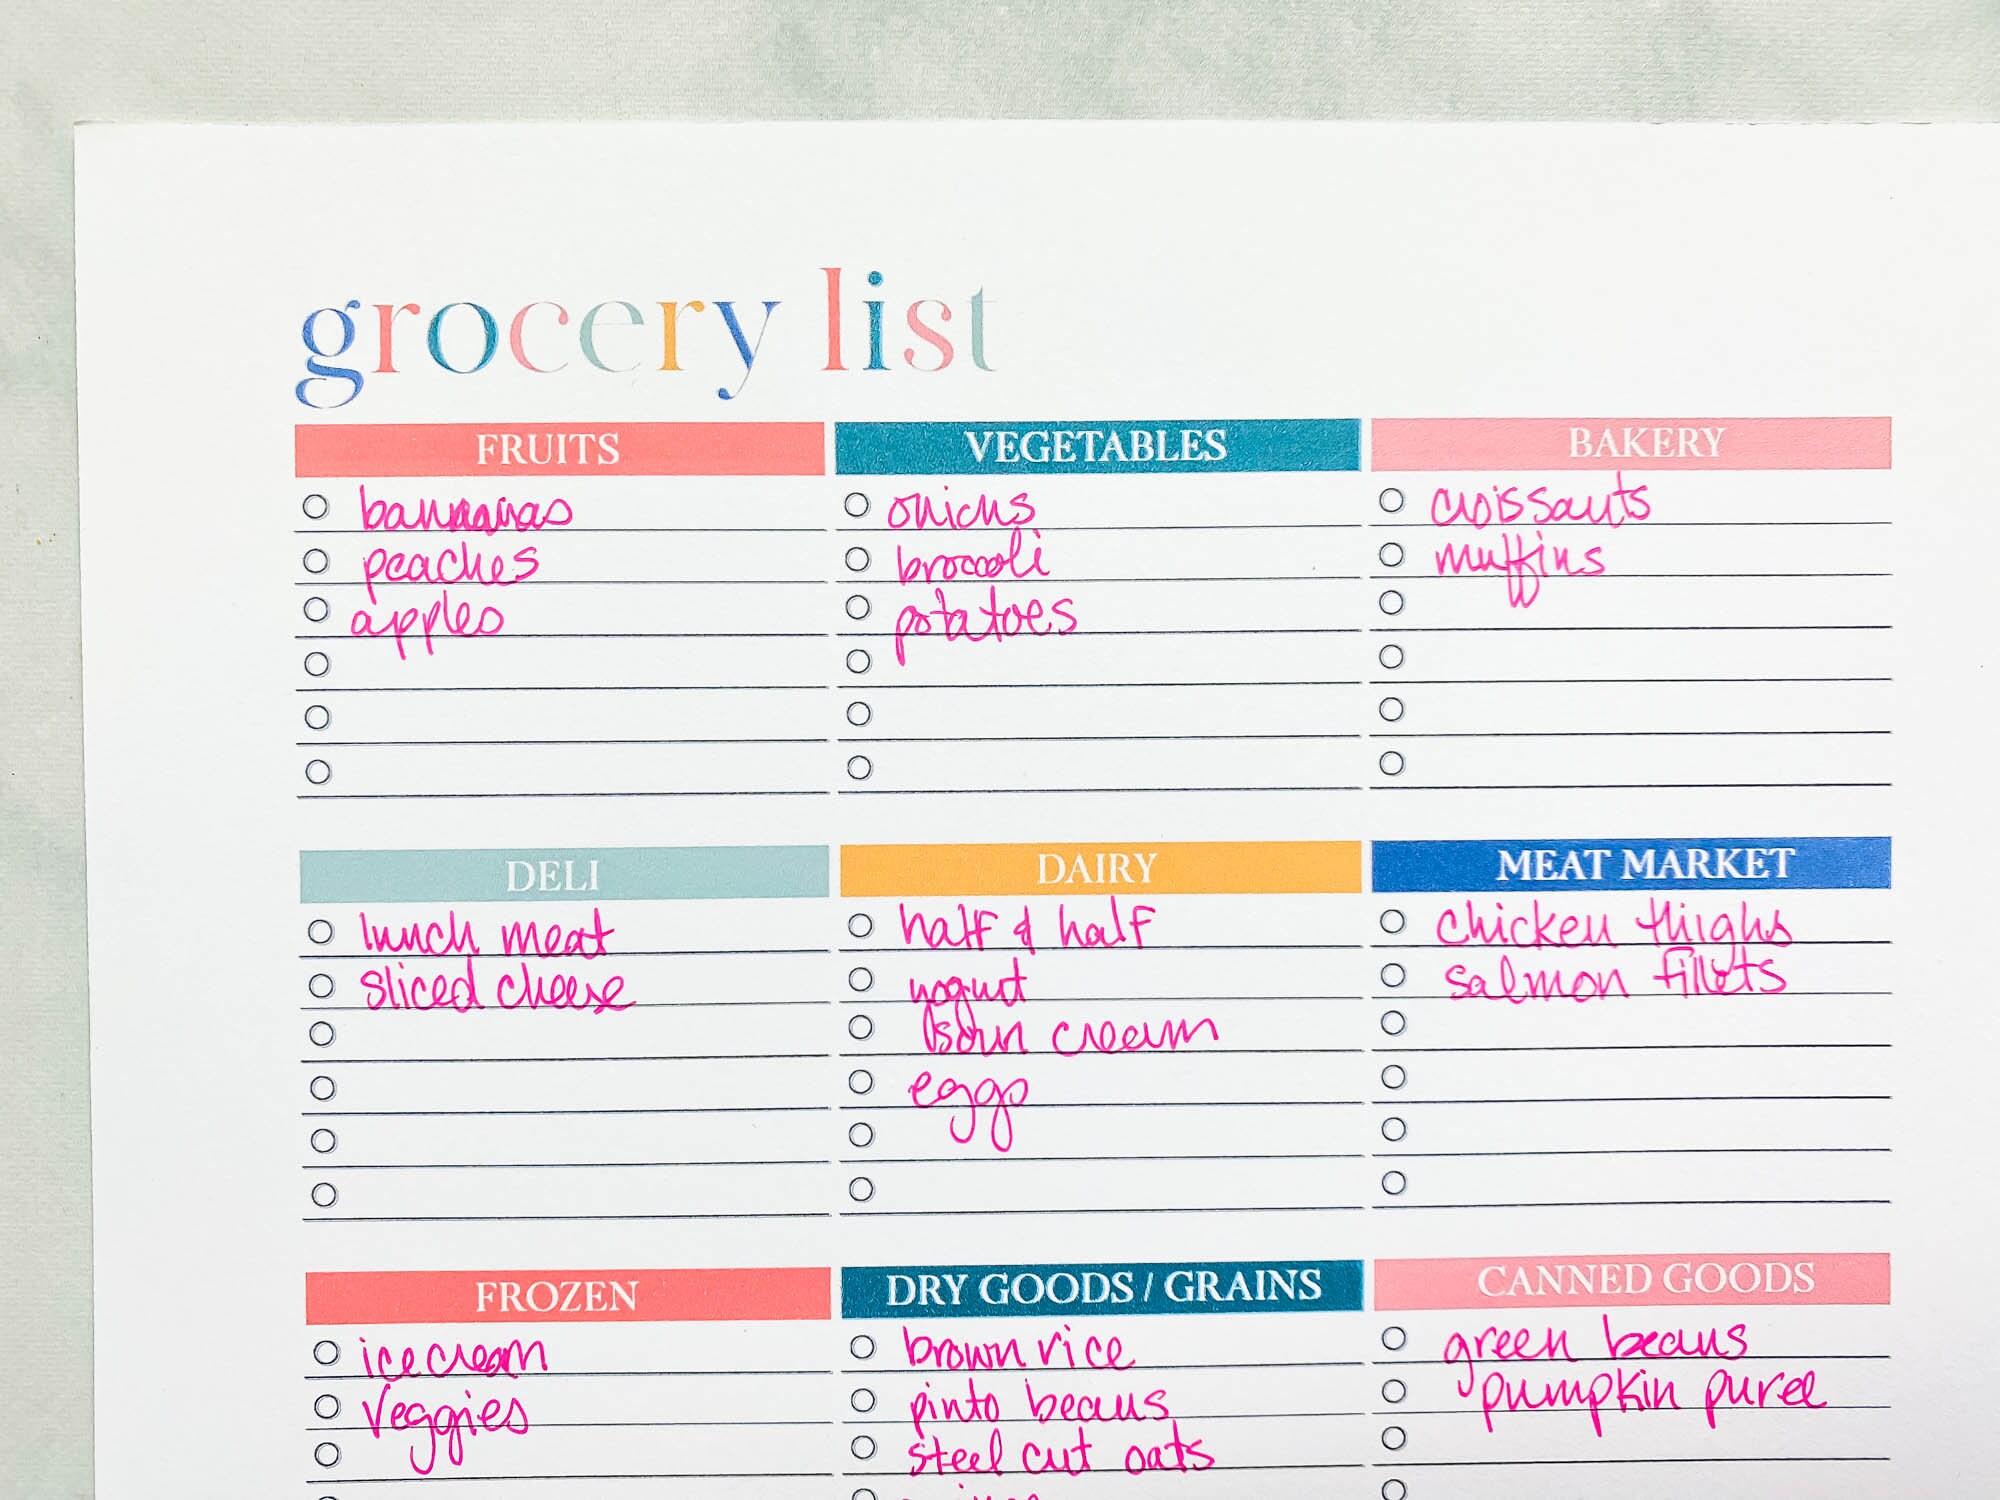 grocery list
FRUITS
bananas
peaches
apples
VEGETABLES
onions
broccoli
potatoes
BAKERY
croissants
muffins
DELI
lunch meat
sliced cheese
DAIRY
half & half
yogurt
sour cream
eggs
MEAT MARKET
chicken thighs
salmon fillets
FROZEN
ice cream
veggies
DRY GOODS / GRAINS
brown rice
pinto beans
steel cut oats
CANNED GOODS
green beans
pumpkin puree